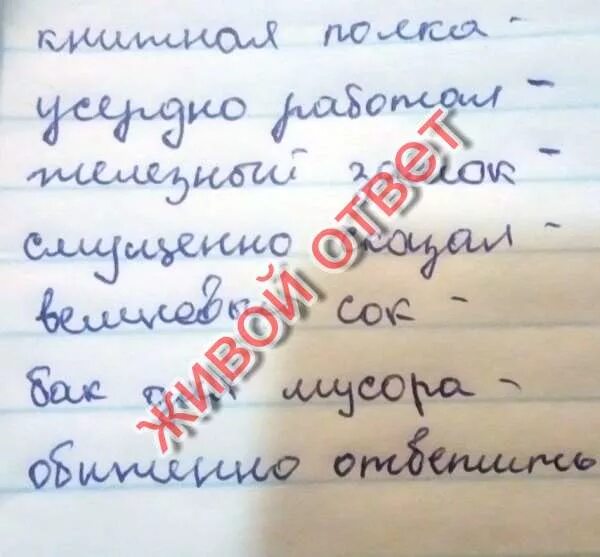 книжная полка -
усердно работал -
железный замок -
смущенно сказал -
вешновый сок -
бак для мусора -
обиженно ответить
ЖИВОЙ ОТВЕТ